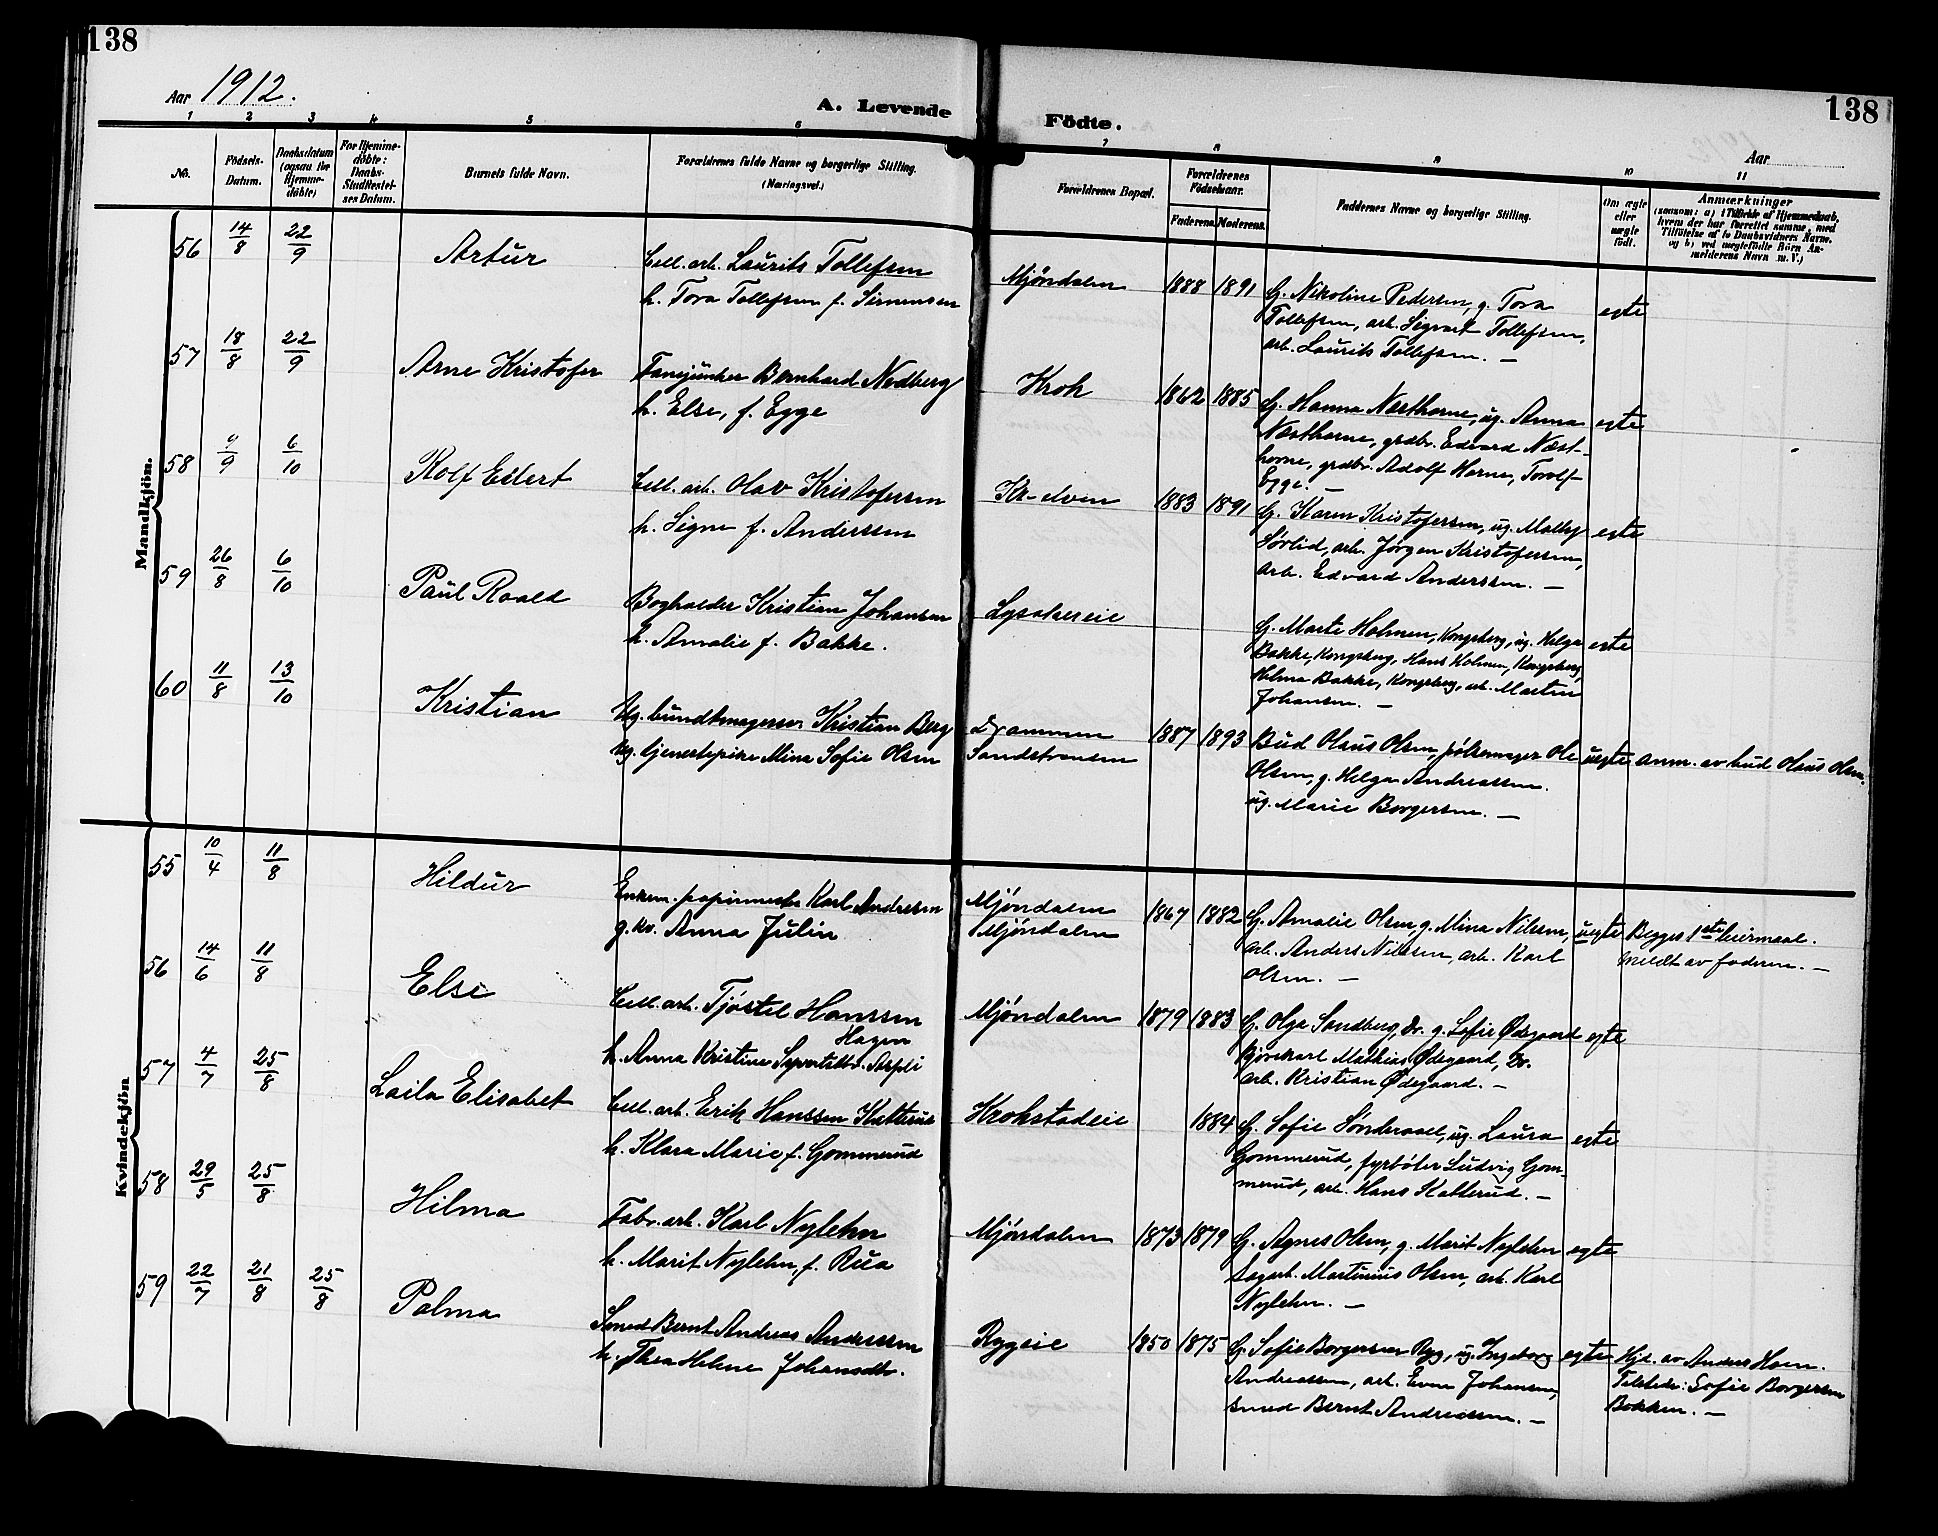 138
138
Aar 1912.
A. Levende Födte.
Aar
1 2 3 4 5 6 7 8 9 10 11
No.
Födsels-
Datum.
Daabsdatum
(ogsaa for
Hjemme-
döbte)
For Hjemme-
döbte:
Daabs-
Stadfæstel-
ses Datum.
Barnets fulde Navn.
Forældrenes fulde Navne og borgerlige Stilling.
(Næringsvei.)
Forældrenes Bopæl.
Forældrenes
Födselsaar.
Faderens. Moderens.
Faddernes Navne og borgerlige Stilling.
Om ægte
eller
uægte
født.
Anmærkninger
(saasom: a) i Tilfælde af Hjemmedaab,
hvem der har forrettet samme, med
Tilföielse af to Daabsvidners Navne.
og b) ved uægtefödte Börn An-
melderens Navn m. V.)
Mandkjön.
56 14/8 22/9 Artur
Cell. arb. Laurits Tollefsen
h. Tora Tollefsen f. Simensen
Mjøndalen 1888 1891
G. Nikoline Pedersen, g. Tora
Tollefsen, arb. Sigvart Tollefsen,
arb. Laurits Tollefsen. —
egte
57 18/8 22/9 Arne Kristofer
Fanejunker Bernhard Nedberg
h. Else, f. Egge
Krok 1862 1885
G. Hanna Næsthorne, ug. Anna
Næsthorne, grdbr. Edvard Næst-
horne, grdbr. Adolf Horne, Torolf
Egge. —
egte
58 9/9 6/10 Rolf Eilert
Cell. arb. Olav Kristofersen
h. Signe f. Anderssen
Kr-elven 1883 1891
G. Karen Kristofersen, ug.
Sørlid, arb. Jørgen Kristofersen,
arb. Edvard Anderssen. —
egte
59 26/8 6/10 Paul Roald
Bogholder Kristian Johansen
h. Amalie f. Bakke.
Lysakereie
G. Marte Holmen, Kongsberg, ug. Helga
Bakke, Kongsberg, Hans Holmen, Kongsberg,
Hilma Bakke, Kongsberg, arb. Martin
Johansen. —
egte
60 11/8 13/10 Kristian
Ug. bundtmagersv. Kristian Berg
ug. tjenestepike Mina Sofie Olsen
Drammen
Sandstranden
1887 1893
Bud Olaus Olsen, pølsemager Ole
Olsen, g. Helga Andreassen.
ug. Marie Borgersen. —
uegte anm. av bud Olaus Olsen.
Kvindekjön
55 10/4 11/8 Hildur
Enkem. papirmester Karl Andresen
g. kv. Anna Julin
Mjøndalen
Mjøndalen
1867 1882
G. Amalie Olsen, g. Mina Nilsen,
arb. Anders Nilssen, arb. Karl
Olsen. —
uegte Begges 1ste leiermaal.
Meldt av faderen. —
56 14/6 11/8 Else
Cell. arb. Tjøstel Hanssen
Hagen
h. Anna Kristine Syvertsdtr. Aspli
Mjøndalen 1879 1883
G. Olga Sandberg, Dr. g. Sofie Ødegaard
kjørekarl Mathias Ødegaard, Dr.
arb. Kristian Ødegaard. —
egte
57 4/7 25/8 Laila Elisabet
Cell. arb. Erik Hanssen Katterud
h. Klara Marie f. Gommerud
Krokstadeie 1884
G. Sofie Sønderaael, ug. Laura
Gommerud, fyrbøter Ludvig Gom-
merud, arb. Hans Katterud. —
egte
58 29/5 25/8 Hilma
Fabr. arb. Karl Nylehn
h. Marit Nylehn, f. Rua
Mjøndalen 1873 1879
G. Agnes Olsen, g. Marit Nylehn
sagarb. Martinius Olsen, arb. Karl
Nylehn. —
egte
59 22/7 21/8 25/8 Palma
Smed Bernt Andreas Anderssen
h. Thea Helene Johansdtr.
Ryggeie 1850 1875
G. Sofie Borgersen Ryg, ug. Ingeborg
Andreassen, arb. Even Johansen,
smed Bernt Andreassen. —
egte Hjd. av Anders Hoen.
Tilstede: Sofie Borgersen
Bakken. —